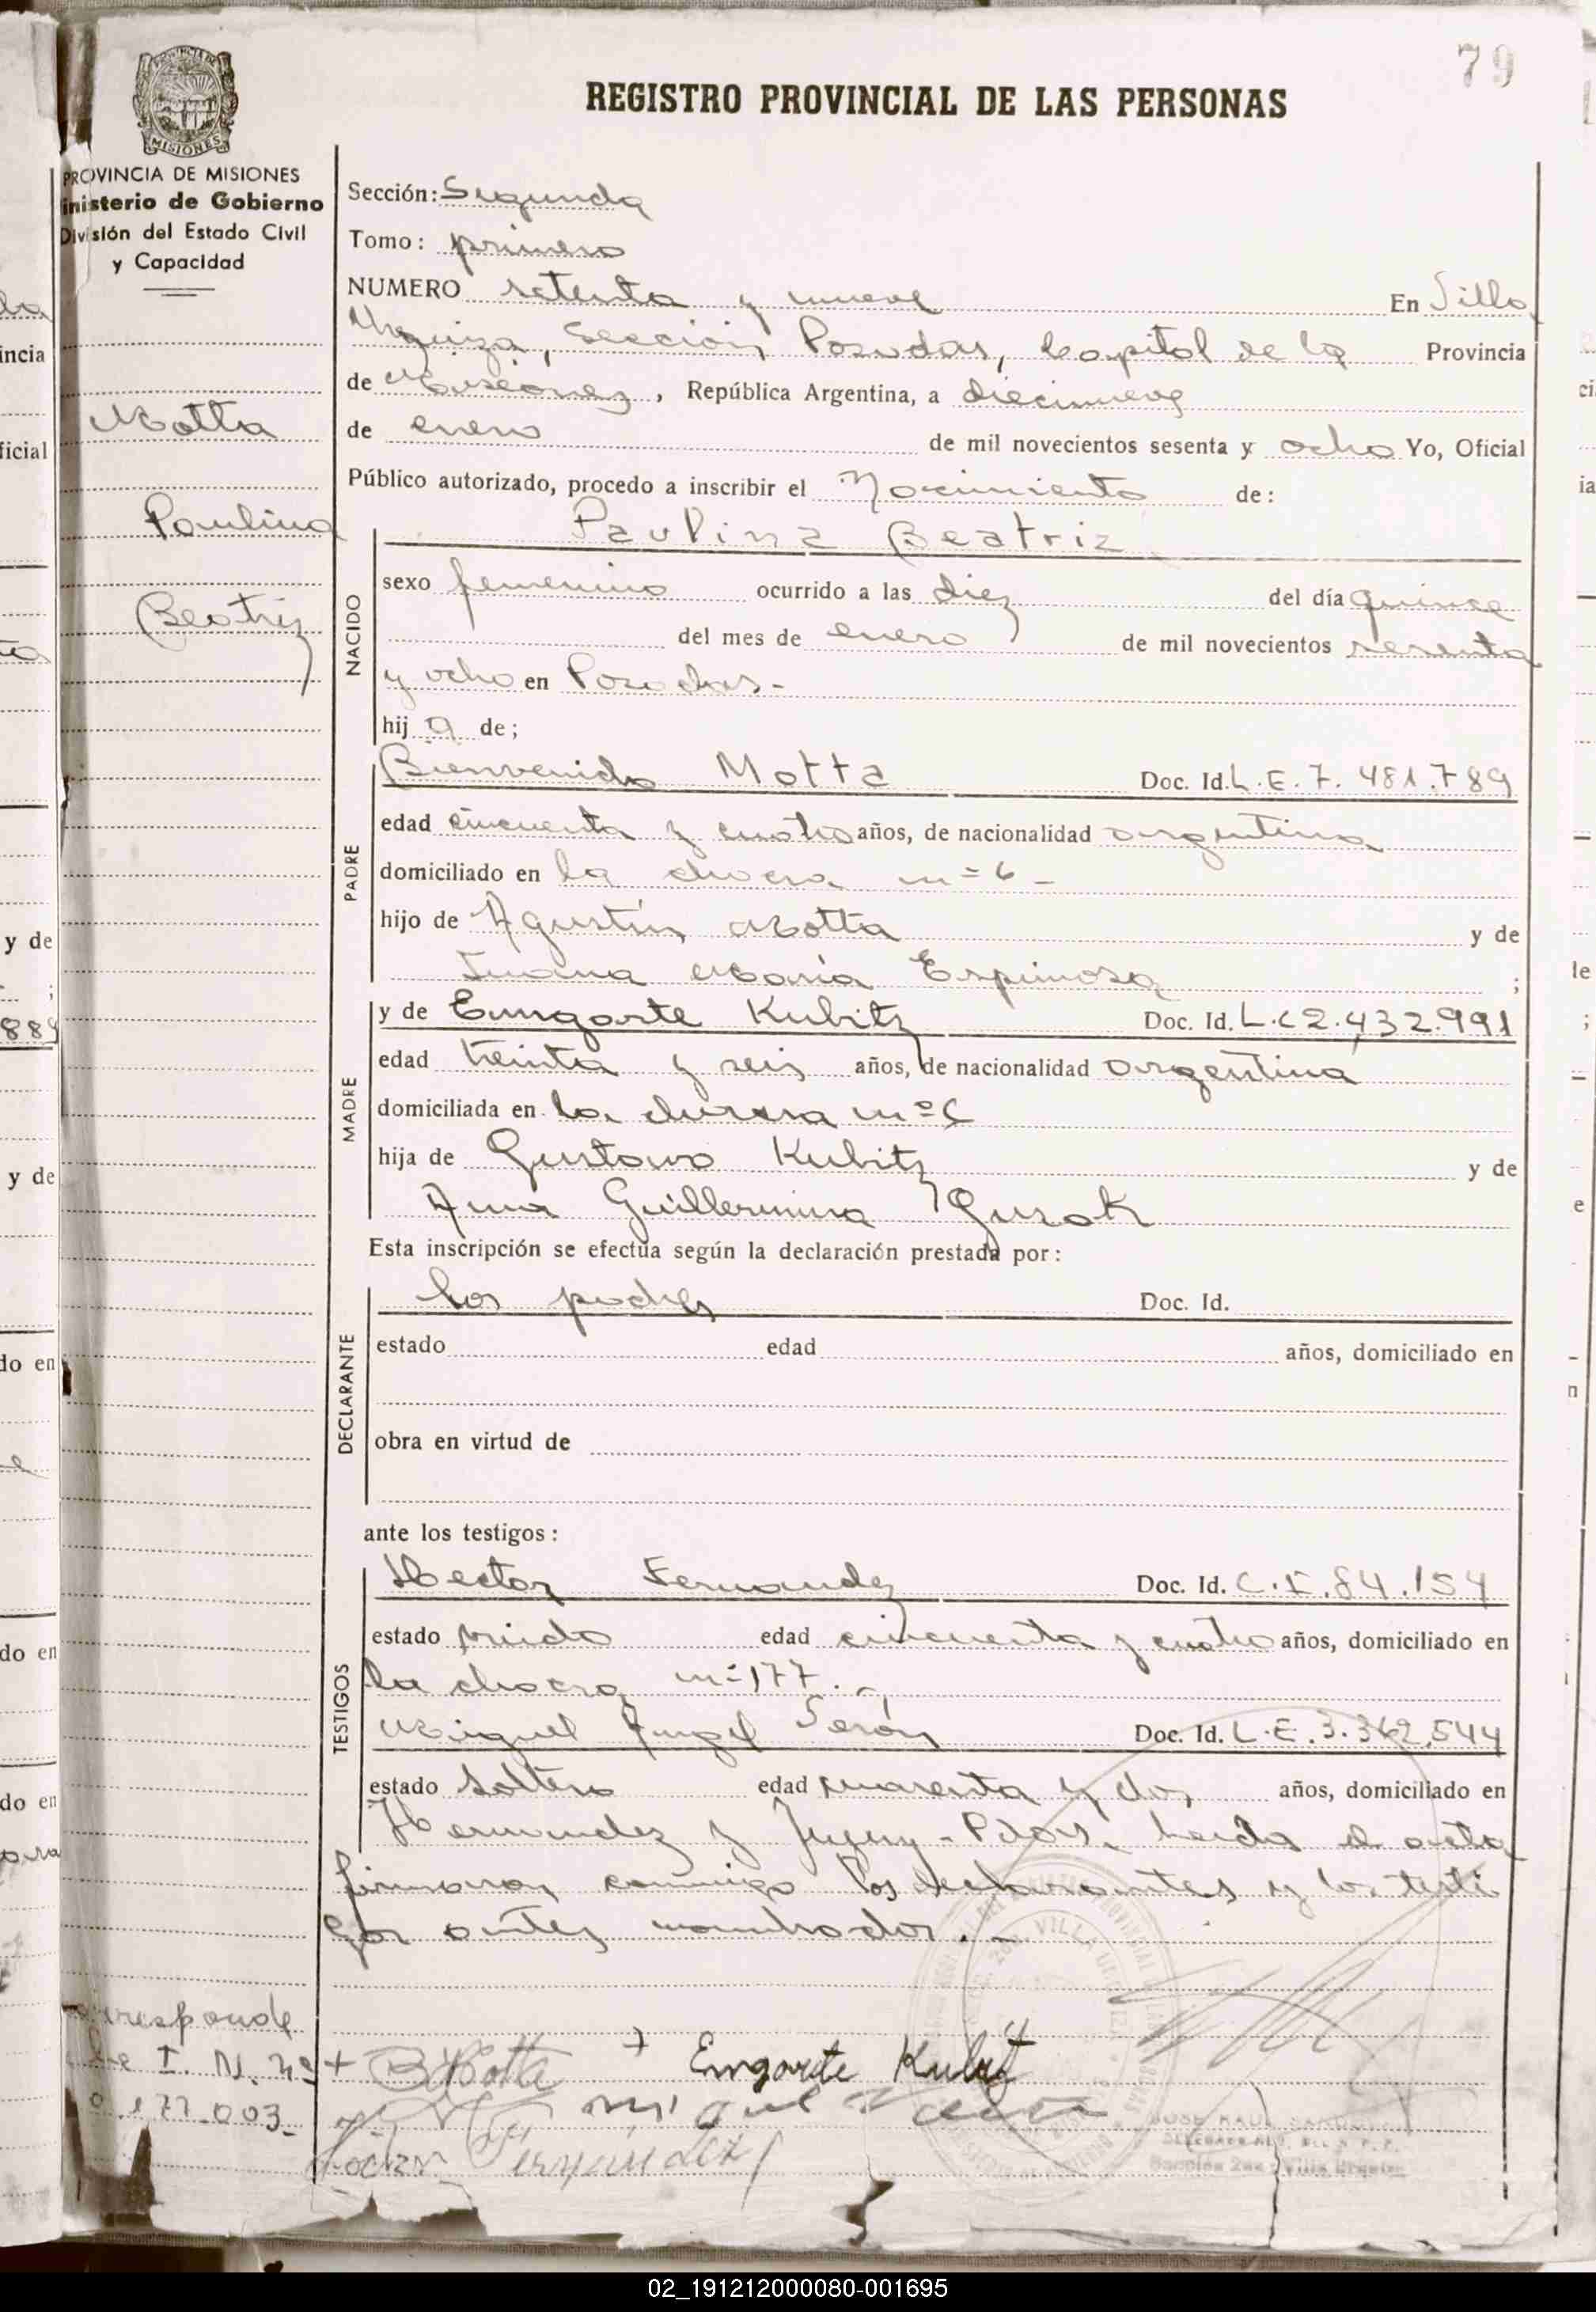 79
REGISTRO PROVINCIAL DE LAS PERSONAS
MISIONES
PROVINCIA DE MISIONES
inisterio de Gobierno
División del Estado Civil
y Capacidad
Motta
Paulina
Beatriz
Sección: Segunda
Tomo: primero
NUMERO setenta y nueve En Villa
Urquiza, Sección Posadas, Capital de la Provincia
de Misiones, República Argentina, a diecinueve
de enero de mil novecientos sesenta y ocho Yo, Oficial
Público autorizado, procedo a inscribir el Nacimiento de:
NACIDO
Paulina Beatriz
sexo femenino ocurrido a las diez del día quince
del mes de enero de mil novecientos sesenta
y ocho en Posadas.-
hij a de;
PADRE
Bienvenido Motta Doc. Id. L.E. 7.481.789
edad cincuenta y cuatro años, de nacionalidad argentina
domiciliado en la chacra nº 6-
hijo de Agustín Motta y de
Juana María Espinosa ;
MADRE
y de Emgarte Kubitz Doc. Id. L.C 2.432.991
edad treinta y seis años, de nacionalidad argentina
domiciliada en la chacra nº 6
hija de Gustavo Kubitz y de
Ana Guillermina Gusok
Esta inscripción se efectúa según la declaración prestada por:
DECLARANTE
los padres Doc. Id.
estado edad años, domiciliado en
obra en virtud de
ante los testigos:
TESTIGOS
Hector Fernandez Doc. Id. C.I. 84.154
estado viudo edad cincuenta y cuatro años, domiciliado en
la chacra nº 177.-
Miguel Angel Verón Doc. Id. L.E. 3.362.544
estado soltero edad cuarenta y dos años, domiciliado en
Hernandez y Jujuy - Pdas. Leida el acta
firmaron conmigo los declarantes y los testi
gos antes nombrados.-
corresponde
I. N. nº
177.003-
+ B Motta + Emgarte Kubit
Miguel
Fernández
JOSE RAUL
Sección 2da. Villa Urquiza
02_191212000080-001695